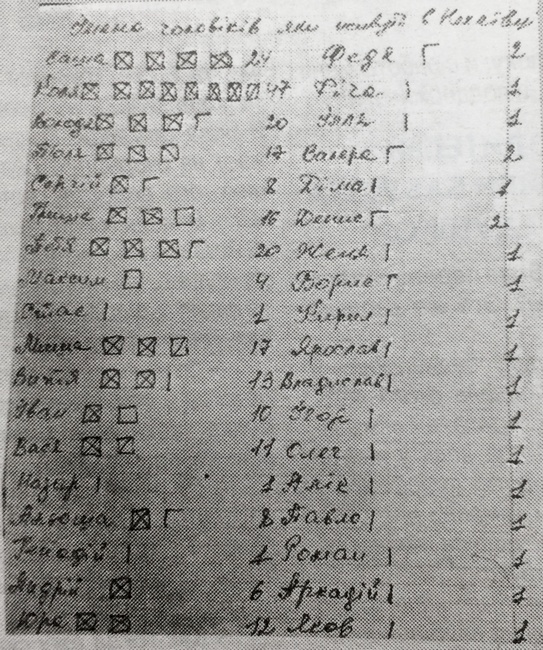 Імена чоловіків які живуть в
Саша 24 Федя 2
Коля 47 Гіга 1
Володя 20 Ілля 1
Толя 17 Валера 2
Сергій 8 Діма 1
Гриша 16 Денис 2
Петя 20 Женя 1
Максим 4 Борис 1
Стас 1 Кирил 1
Миша 17 Ярослав 1
Витя 13 Владислав 1
Іван 10 Ігор 1
Вася 11 Олег 1
Назар 1 Алік 1
Альоша 8 Павло 1
Генадій 1 Роман 1
Андрій 6 Аркадій 1
Юра 12 Яков 1